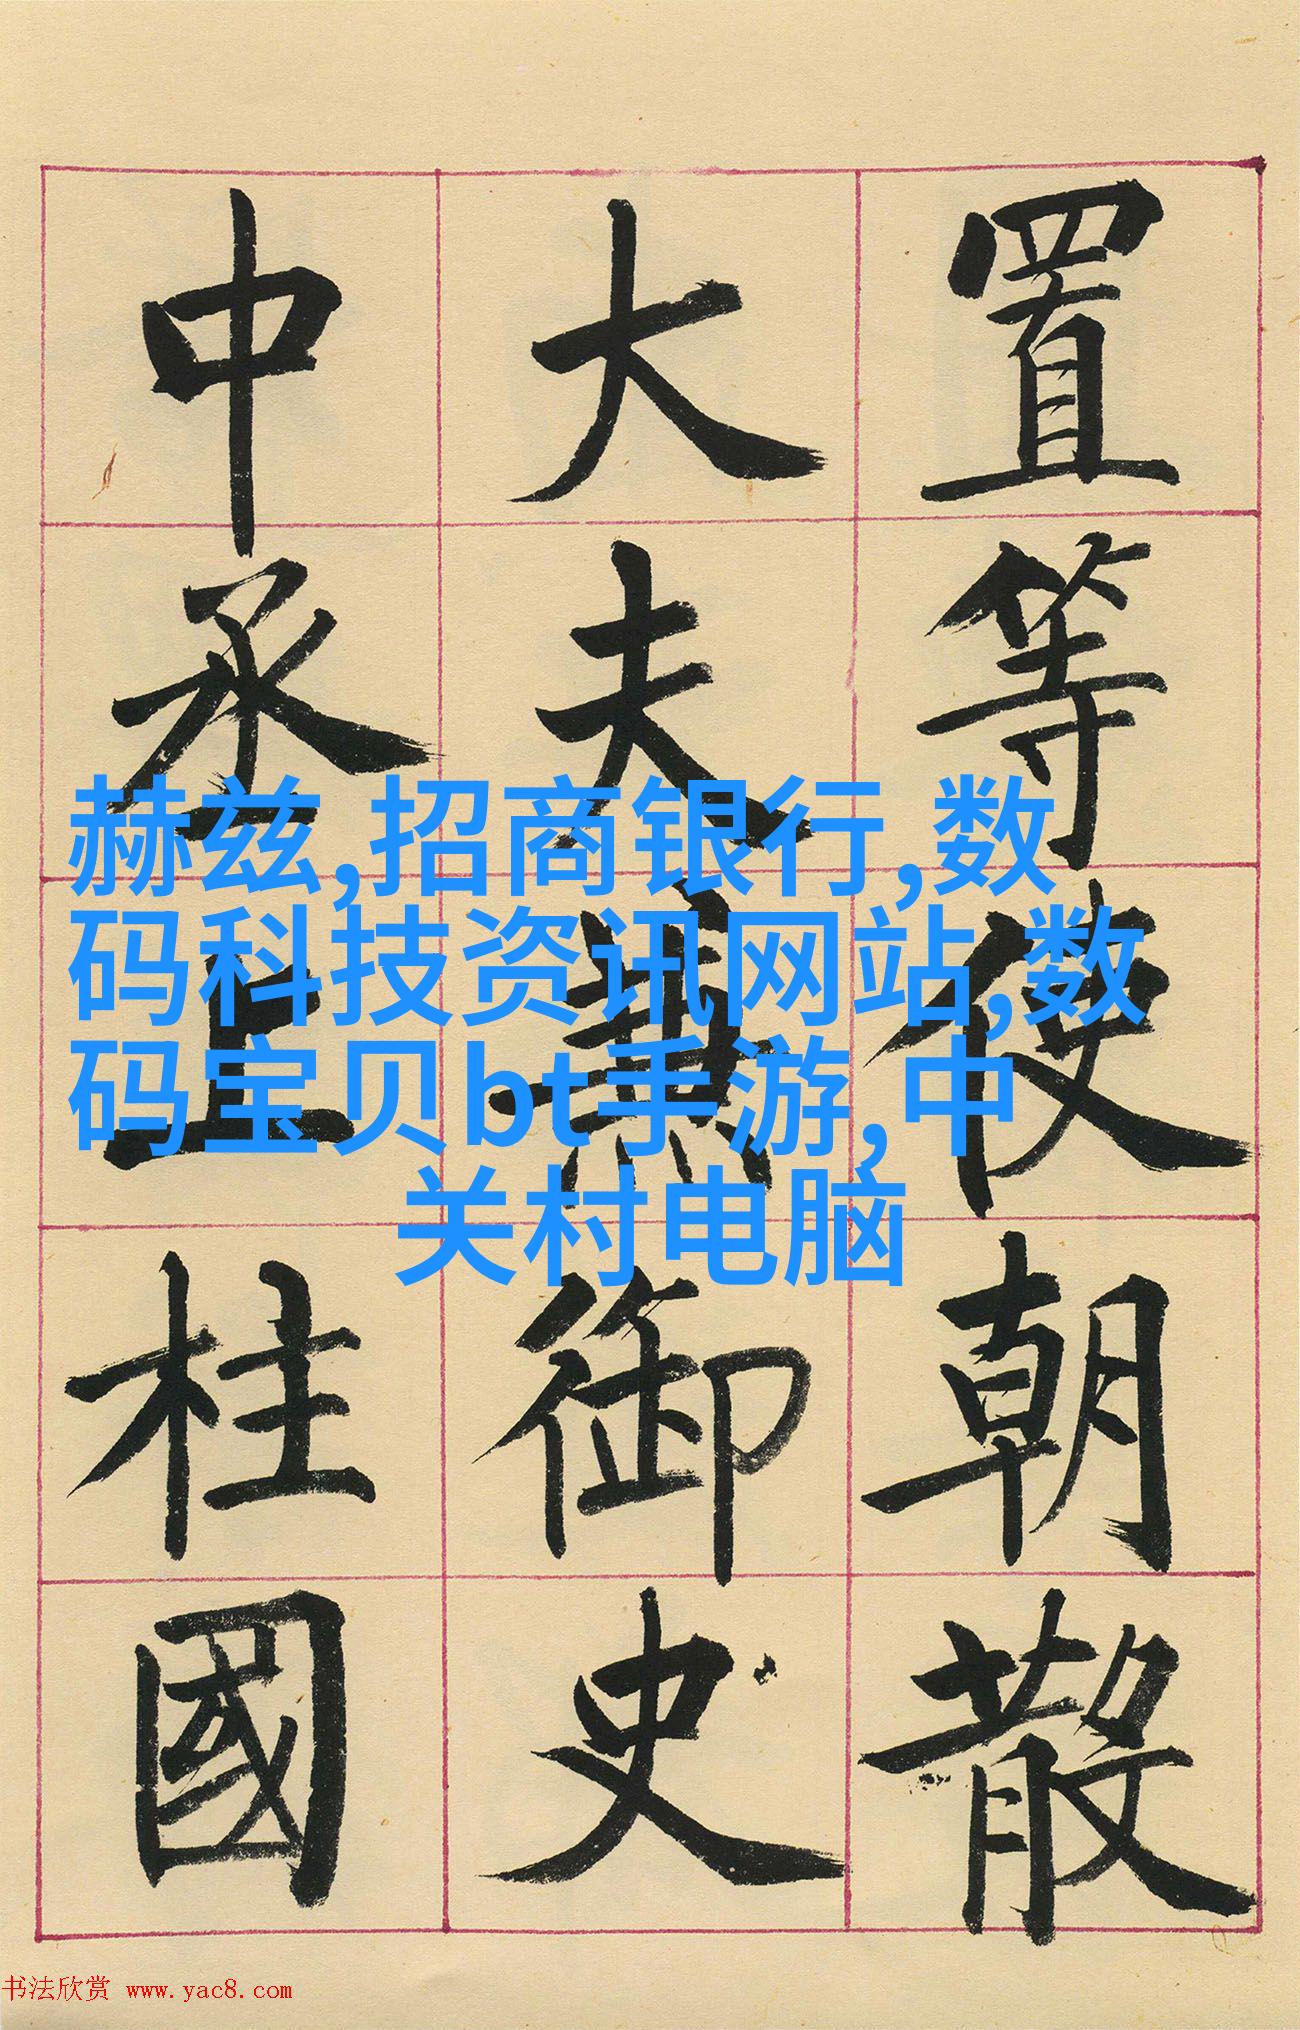 置等使朝散
大夫兼御史
中丞上柱國
赫兹,招商银行,数
码科技资讯网站,数
码宝贝bt手游,中
关村电脑
书法欣赏 www.yac8.com